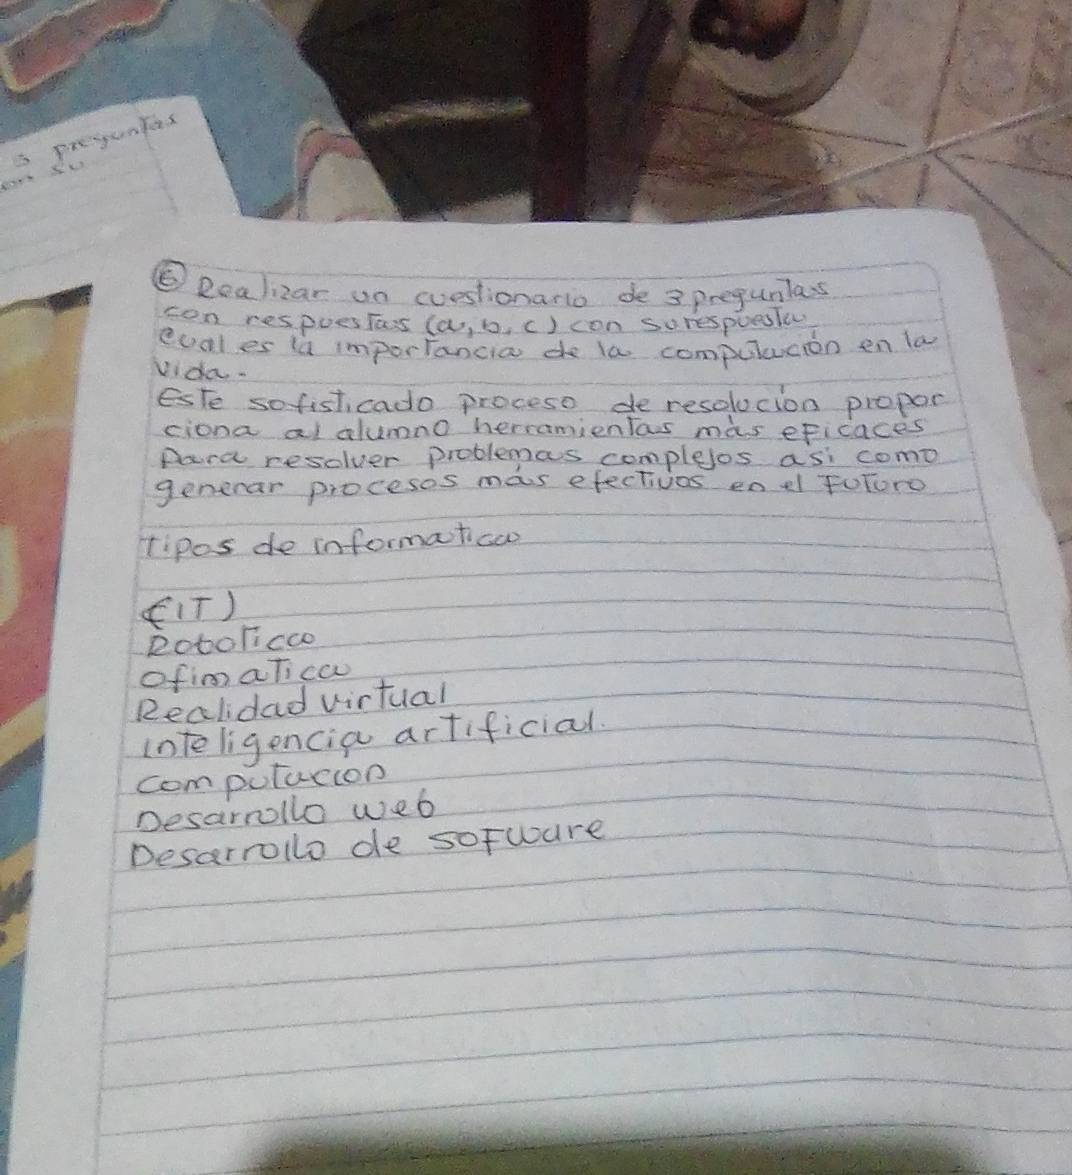 3 preguntas
con su
⑥ Realizar un cuestionario de 3 preguntas
con respuestas (a, b, c) con su respuesta
cual es la importancia de la computación en la
vida.
Este sofisticado proceso de resolucion propor
ciona al alumno herramientas más eficaces
para resolver problemas complejos asi como
generar procesos más efectivos en el Futuro
Tipos de informatica
(IT)
Robotica
Ofimatica
Realidad virtual
inteligencia artificial.
computacion
Desarrollo web
Desarrollo de sofware